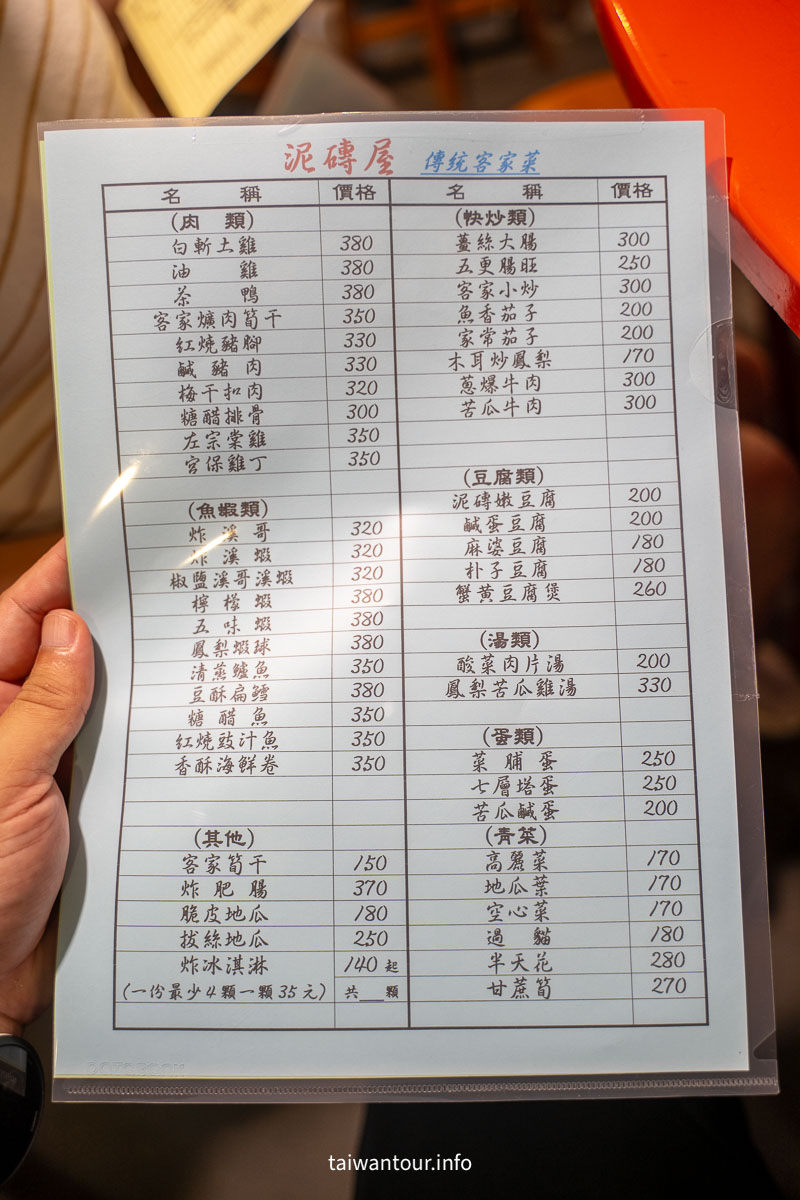 泥磚屋 傳統客家菜
名 稱 價格
(肉 類)
白斬土雞 380
油 雞 380
茶 鴨 380
客家爌肉筍干 350
紅燒豬腳 330
鹹豬肉 330
梅干扣肉 320
糖醋排骨 300
左宗棠雞 350
宮保雞丁 350
(魚蝦類)
炸溪哥 320
炸溪蝦 320
椒鹽溪哥溪蝦 320
檸檬蝦 380
五味蝦 380
鳳梨蝦球 380
清蒸鱸魚 350
豆酥扁鱈 380
糖醋魚 350
紅燒豉汁魚 350
香酥海鮮卷 350
(其他)
客家筍干 150
炸肥腸 370
脆皮地瓜 180
拔絲地瓜 250
炸冰淇淋 140起
(一份最少4顆一顆35元) 共__顆
名 稱 價格
(快炒類)
薑絲大腸 300
五更腸旺 250
客家小炒 300
魚香茄子 200
家常茄子 200
木耳炒鳳梨 170
蔥爆牛肉 300
苦瓜牛肉 300
(豆腐類)
泥磚嫩豆腐 200
鹹蛋豆腐 200
麻婆豆腐 180
朴子豆腐 180
蟹黃豆腐煲 260
(湯類)
酸菜肉片湯 200
鳳梨苦瓜雞湯 330
(蛋類)
菜脯蛋 250
七層塔蛋 250
苦瓜鹹蛋 200
(青菜)
高麗菜 170
地瓜葉 170
空心菜 170
過貓 180
半天花 280
甘蔗筍 270
taiwantour.info